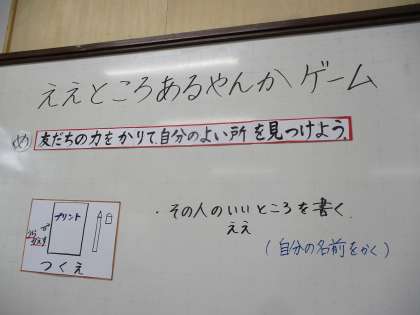 ええところあるやんかゲーム
め 友だちの力をかりて、自分のよい所を見つけよう。
・その人のいいところを書く。
ええ
(自分の名前をかく)
プリント
つくえ